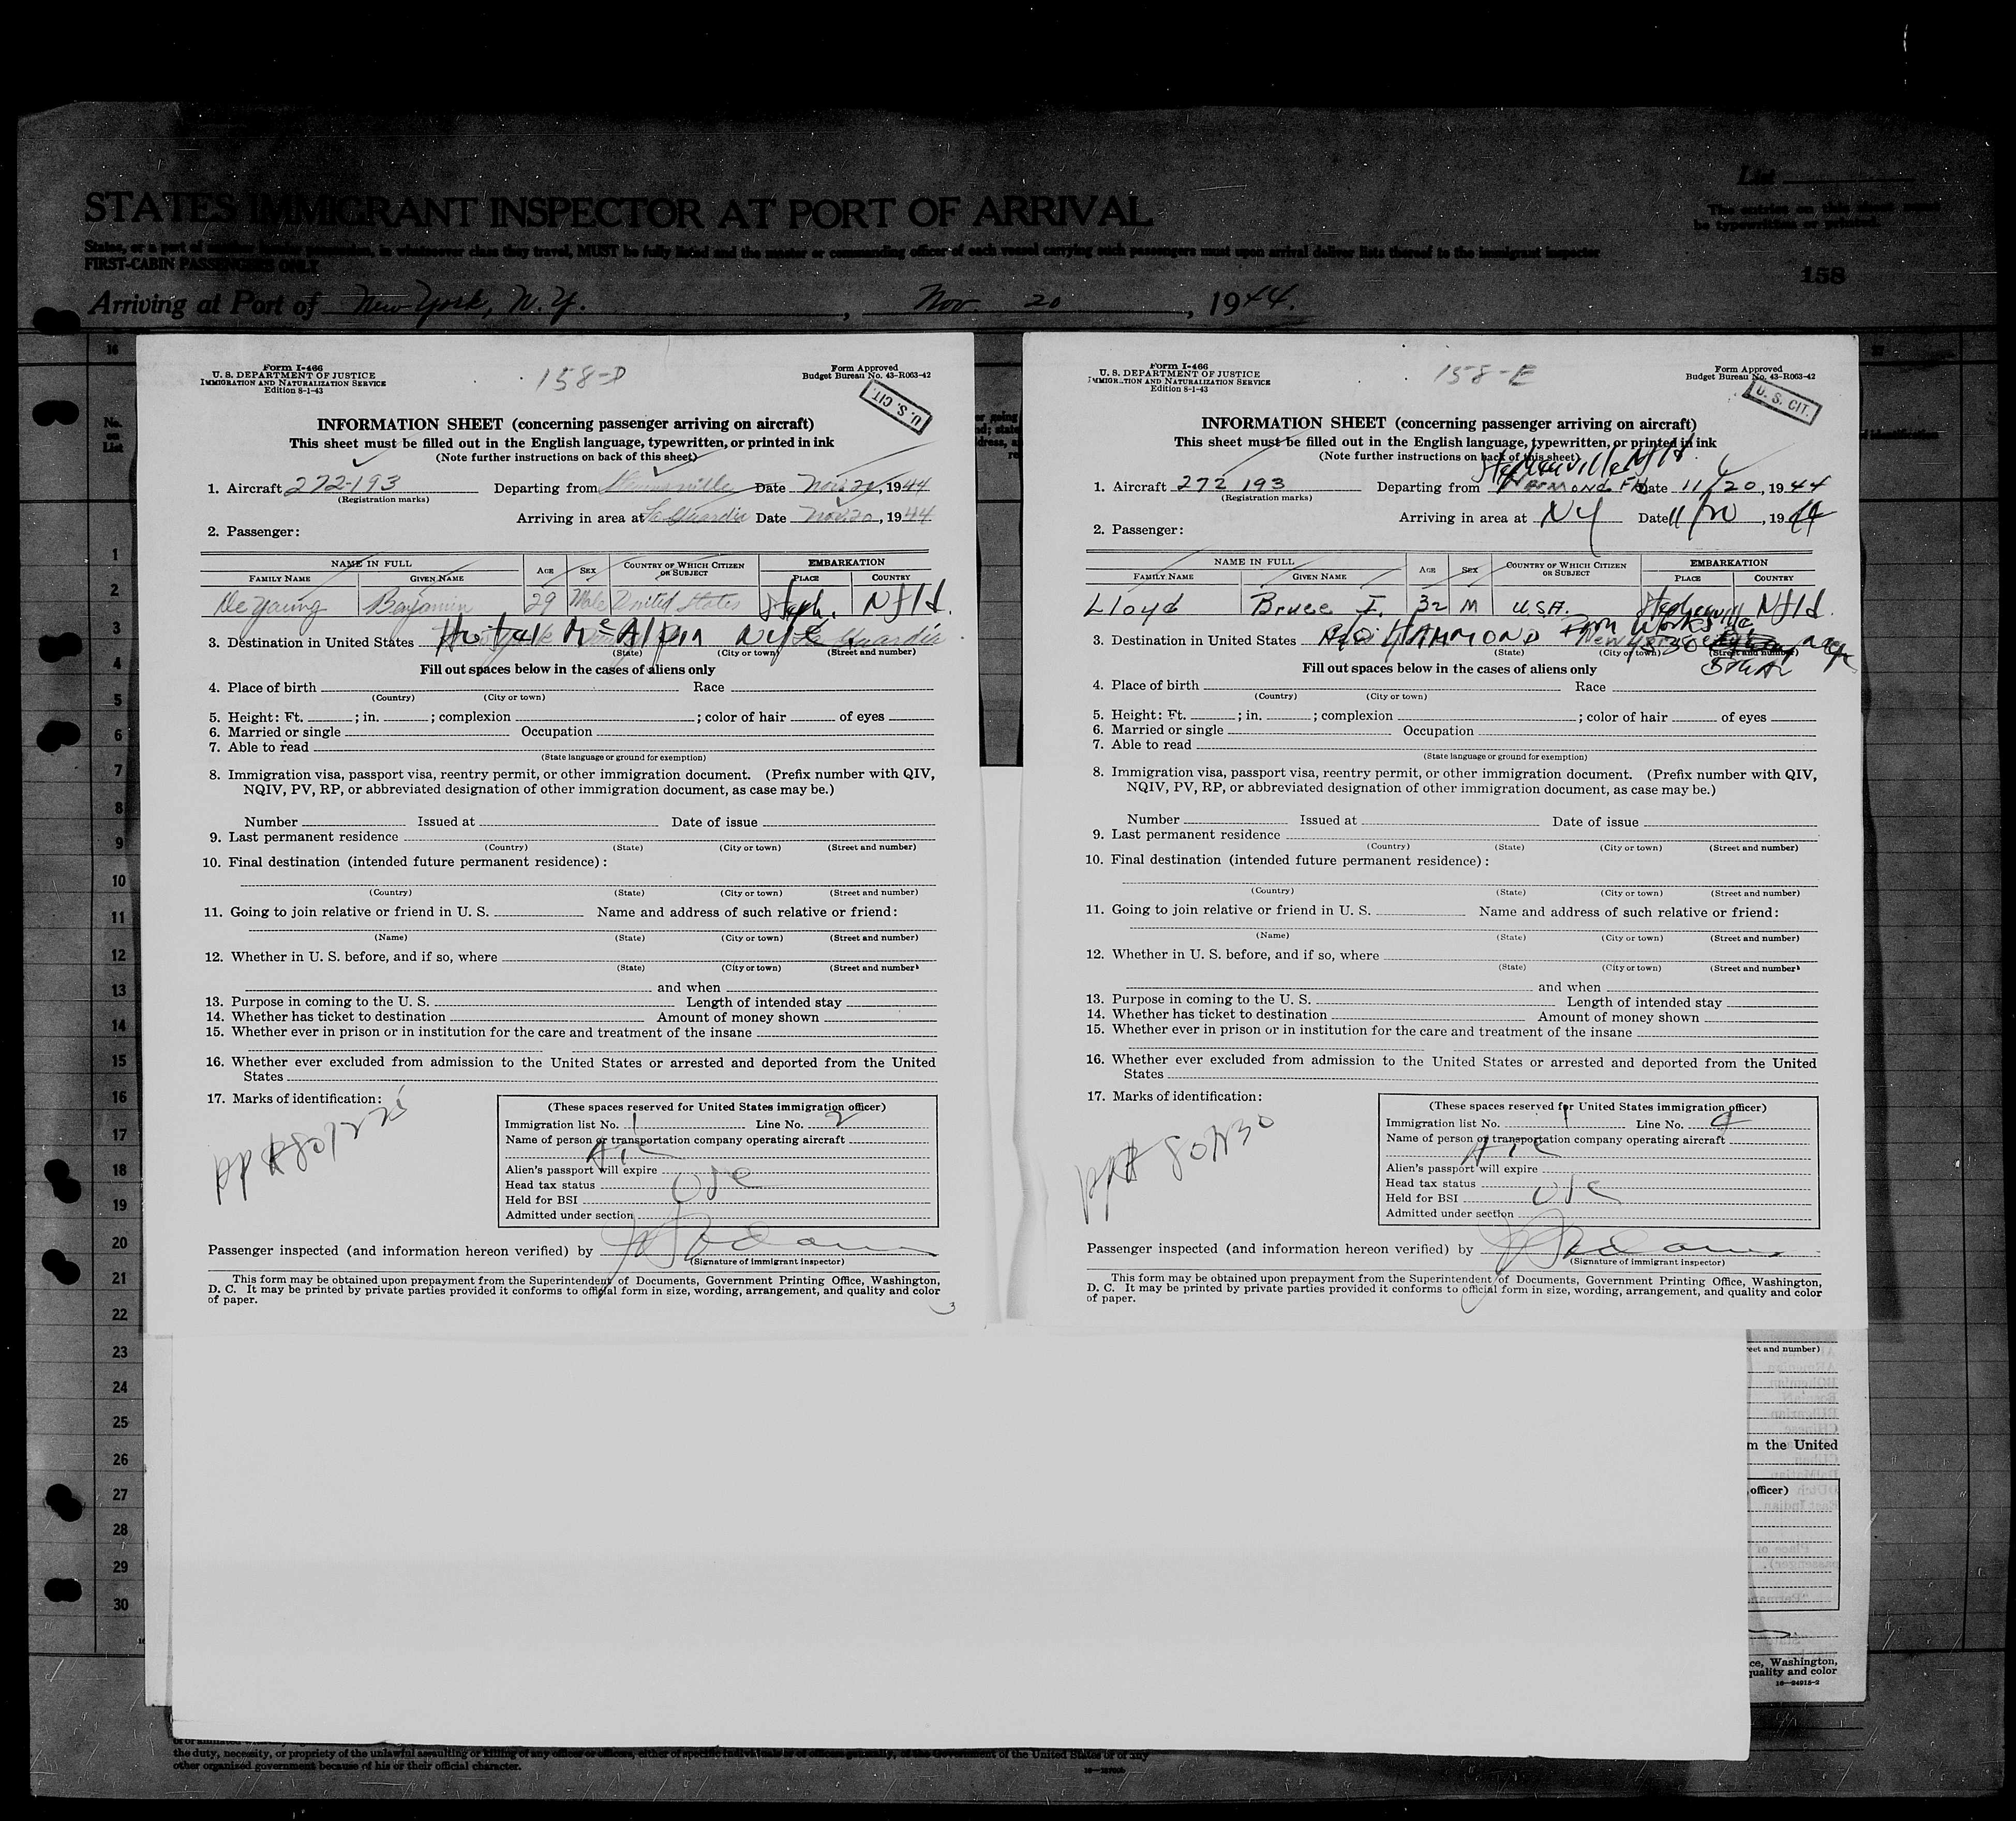 List
STATES IMMIGRANT INSPECTOR AT PORT OF ARRIVAL
The entries on this sheet must
be typewritten or printed.
States, or a port of another insular possession, in whatsoever class they travel, MUST be fully listed and the master or commanding officer of each vessel carrying such passengers must upon arrival deliver lists thereof to the immigrant inspector
FIRST-CABIN PASSENGERS ONLY
158
Arriving at Port of New York, N.Y., Nov. 20, 1944.
No.
on
List
1
2
3
4
5
6
7
8
9
10
11
12
13
14
15
16
17
18
19
20
21
22
23
24
25
26
27
28
29
30
Form I-466
U. S. DEPARTMENT OF JUSTICE
IMMIGRATION AND NATURALIZATION SERVICE
Edition 8-1-43
158-D
Form Approved
Budget Bureau No. 43-R063-42
U. S. CIT.
INFORMATION SHEET (concerning passenger arriving on aircraft)
This sheet must be filled out in the English language, typewritten, or printed in ink
(Note further instructions on back of this sheet)
1. Aircraft 272-193 Departing from Date Nov. 20, 1944
(Registration marks)
Arriving in area at La Guardia Date Nov. 20, 1944
2. Passenger:
NAME IN FULL AGE SEX COUNTRY OF WHICH CITIZEN OR SUBJECT EMBARKATION
FAMILY NAME GIVEN NAME PLACE COUNTRY
De Young Benjamin 29 Male United States Steph. Nfld.
3. Destination in United States Hotel McAlpin NYC La Guardia
(State) (City or town) (Street and number)
Fill out spaces below in the cases of aliens only
4. Place of birth Race
(Country) (City or town)
5. Height: Ft. ; in. ; complexion ; color of hair of eyes
6. Married or single Occupation
7. Able to read
(State language or ground for exemption)
8. Immigration visa, passport visa, reentry permit, or other immigration document. (Prefix number with QIV,
NQIV, PV, RP, or abbreviated designation of other immigration document, as case may be.)
Number Issued at Date of issue
9. Last permanent residence
(Country) (State) (City or town) (Street and number)
10. Final destination (intended future permanent residence):
(Country) (State) (City or town) (Street and number)
11. Going to join relative or friend in U. S. Name and address of such relative or friend:
(Name) (State) (City or town) (Street and number)
12. Whether in U. S. before, and if so, where
(State) (City or town) (Street and number)
and when
13. Purpose in coming to the U. S. Length of intended stay
14. Whether has ticket to destination Amount of money shown
15. Whether ever in prison or in institution for the care and treatment of the insane
16. Whether ever excluded from admission to the United States or arrested and deported from the United
States
17. Marks of identification:
(These spaces reserved for United States immigration officer)
Immigration list No. 1 Line No. 2
Name of person or transportation company operating aircraft
Alien's passport will expire
Head tax status
Held for BSI
Admitted under section
Passenger inspected (and information hereon verified) by
(Signature of immigrant inspector)
This form may be obtained upon prepayment from the Superintendent of Documents, Government Printing Office, Washington,
D. C. It may be printed by private parties provided it conforms to official form in size, wording, arrangement, and quality and color
of paper.
3
Form I-466
U. S. DEPARTMENT OF JUSTICE
IMMIGRATION AND NATURALIZATION SERVICE
Edition 8-1-43
158-E
Form Approved
Budget Bureau No. 43-R063-42
U. S. CIT.
INFORMATION SHEET (concerning passenger arriving on aircraft)
This sheet must be filled out in the English language, typewritten, or printed in ink
(Note further instructions on back of this sheet)
Stephenville Nfld.
1. Aircraft 272 193 Departing from Date 11/20, 1944
(Registration marks)
Arriving in area at NY Date 11/20, 1944
2. Passenger:
NAME IN FULL AGE SEX COUNTRY OF WHICH CITIZEN OR SUBJECT EMBARKATION
FAMILY NAME GIVEN NAME PLACE COUNTRY
Lloyd Bruce I. 32 M USA. Nfld.
3. Destination in United States HAMMOND
(State) (City or town) (Street and number)
Fill out spaces below in the cases of aliens only
4. Place of birth Race
(Country) (City or town)
5. Height: Ft. ; in. ; complexion ; color of hair of eyes
6. Married or single Occupation
7. Able to read
(State language or ground for exemption)
8. Immigration visa, passport visa, reentry permit, or other immigration document. (Prefix number with QIV,
NQIV, PV, RP, or abbreviated designation of other immigration document, as case may be.)
Number Issued at Date of issue
9. Last permanent residence
(Country) (State) (City or town) (Street and number)
10. Final destination (intended future permanent residence):
(Country) (State) (City or town) (Street and number)
11. Going to join relative or friend in U. S. Name and address of such relative or friend:
(Name) (State) (City or town) (Street and number)
12. Whether in U. S. before, and if so, where
(State) (City or town) (Street and number)
and when
13. Purpose in coming to the U. S. Length of intended stay
14. Whether has ticket to destination Amount of money shown
15. Whether ever in prison or in institution for the care and treatment of the insane
16. Whether ever excluded from admission to the United States or arrested and deported from the United
States
17. Marks of identification:
(These spaces reserved for United States immigration officer)
Immigration list No. 1 Line No.
Name of person or transportation company operating aircraft
Alien's passport will expire
Head tax status
Held for BSI
Admitted under section
Passenger inspected (and information hereon verified) by
(Signature of immigrant inspector)
This form may be obtained upon prepayment from the Superintendent of Documents, Government Printing Office, Washington,
D. C. It may be printed by private parties provided it conforms to official form in size, wording, arrangement, and quality and color
of paper.
reet and number)
m the United
officer)
ce, Washington,
quality and color
16—24915-2
the duty, necessity, or propriety of the unlawful assaulting or killing of any officer or officers, either of specific individuals or of officers generally, of the Government of the United States or of any
other organized government because of his or their official character.